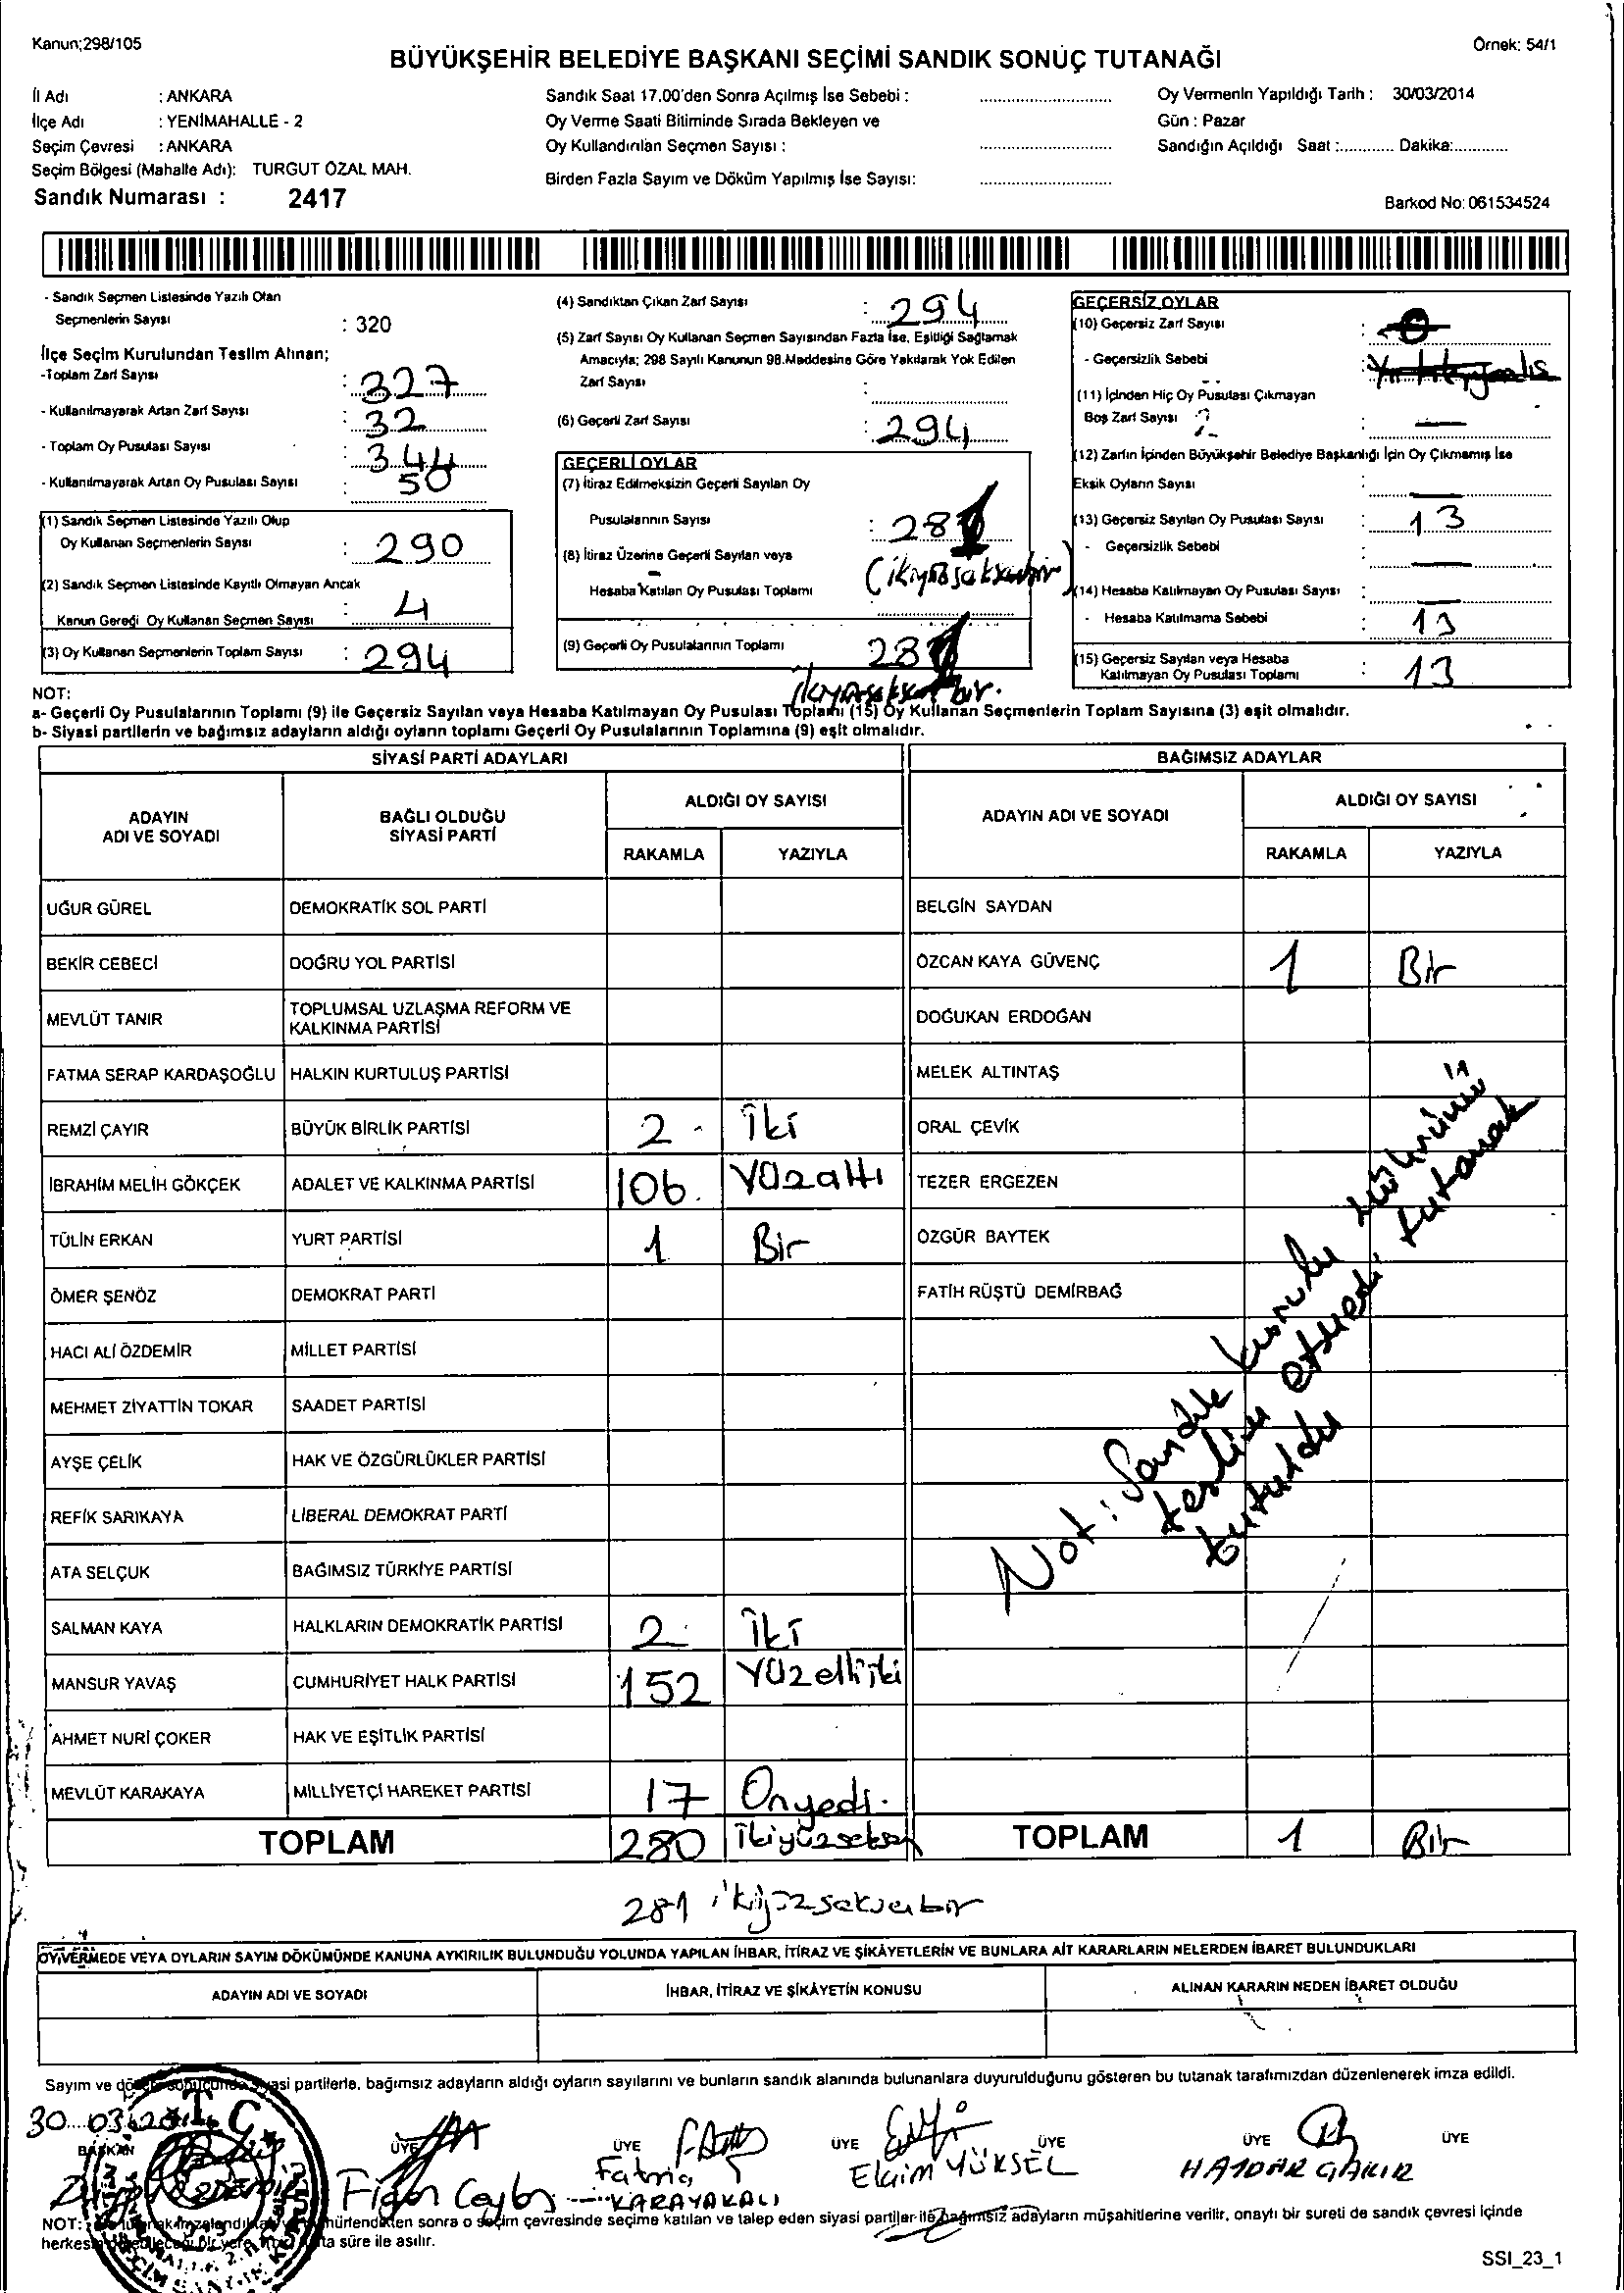 Kanun;298/105
Örnek: 54/1
BÜYÜKŞEHİR BELEDİYE BAŞKANI SEÇİMİ SANDIK SONUÇ TUTANAĞI
İl Adı : ANKARA
İlçe Adı : YENİMAHALLE - 2
Seçim Çevresi : ANKARA
Seçim Bölgesi (Mahalle Adı): TURGUT ÖZAL MAH.
Sandık Numarası : 2417
Sandık Saat 17.00'den Sonra Açılmış İse Sebebi :
Oy Verme Saati Bitiminde Sırada Bekleyen ve
Oy Kullandırılan Seçmen Sayısı :
Birden Fazla Sayım ve Döküm Yapılmış İse Sayısı:
Oy Vermenin Yapıldığı Tarih : 30/03/2014
Gün : Pazar
Sandığın Açıldığı Saat :............ Dakika:............
Barkod No: 061534524
- Sandık Seçmen Listesinde Yazılı Olan
Seçmenlerin Sayısı : 320
İlçe Seçim Kurulundan Teslim Alınan;
-Toplam Zarf Sayısı : 327
- Kullanılmayarak Artan Zarf Sayısı : 32
- Toplam Oy Pusulası Sayısı : 344
- Kullanılmayarak Artan Oy Pusulası Sayısı : 50
(1) Sandık Seçmen Listesinde Yazılı Olup
Oy Kullanan Seçmenlerin Sayısı : 290
(2) Sandık Seçmen Listesinde Kayıtlı Olmayan Ancak
Kanun Gereği Oy Kullanan Seçmen Sayısı : 4
(3) Oy Kullanan Seçmenlerin Toplam Sayısı : 294
(4) Sandıktan Çıkan Zarf Sayısı : 294
(5) Zarf Sayısı Oy Kullanan Seçmen Sayısından Fazla İse, Eşitliği Sağlamak
Amacıyla; 298 Sayılı Kanunun 98.Maddesine Göre Yakılarak Yok Edilen
Zarf Sayısı :
(6) Geçerli Zarf Sayısı : 294
GEÇERLİ OYLAR
(7) İtiraz Edilmeksizin Geçerli Sayılan Oy
Pusulalarının Sayısı : 281
(8) İtiraz Üzerine Geçerli Sayılan veya
Hesaba Katılan Oy Pusulası Toplamı
(ikiyüzseksenbir)
(9) Geçerli Oy Pusulalarının Toplamı 281
ikiyüzseksenbir.
GEÇERSİZ OYLAR
(10) Geçersiz Zarf Sayısı : 0
- Geçersizlik Sebebi :
(11) İçinden Hiç Oy Pusulası Çıkmayan
Boş Zarf Sayısı : —
(12) Zarfın İçinden Büyükşehir Belediye Başkanlığı İçin Oy Çıkmamış İse
Eksik Oyların Sayısı :
(13) Geçersiz Sayılan Oy Pusulası Sayısı : 13
- Geçersizlik Sebebi : —
(14) Hesaba Katılmayan Oy Pusulası Sayısı : —
- Hesaba Katılmama Sebebi : 13
(15) Geçersiz Sayılan veya Hesaba
Katılmayan Oy Pusulası Toplamı : 13
NOT:
a- Geçerli Oy Pusulalarının Toplamı (9) ile Geçersiz Sayılan veya Hesaba Katılmayan Oy Pusulası Toplamı (15) Oy Kullanan Seçmenlerin Toplam Sayısına (3) eşit olmalıdır.
b- Siyasi partilerin ve bağımsız adayların aldığı oyların toplamı Geçerli Oy Pusulalarının Toplamına (9) eşit olmalıdır.
SİYASİ PARTİ ADAYLARI
BAĞIMSIZ ADAYLAR
ADAYIN ADI VE SOYADI
BAĞLI OLDUĞU SİYASİ PARTİ
ALDIĞI OY SAYISI
RAKAMLA YAZIYLA
ADAYIN ADI VE SOYADI
ALDIĞI OY SAYISI
RAKAMLA YAZIYLA
UĞUR GÜREL DEMOKRATİK SOL PARTİ BELGİN SAYDAN
BEKİR CEBECİ DOĞRU YOL PARTİSİ ÖZCAN KAYA GÜVENÇ 1 Bir
MEVLÜT TANIR TOPLUMSAL UZLAŞMA REFORM VE KALKINMA PARTİSİ DOĞUKAN ERDOĞAN
FATMA SERAP KARDAŞOĞLU HALKIN KURTULUŞ PARTİSİ MELEK ALTINTAŞ
REMZİ ÇAYIR BÜYÜK BİRLİK PARTİSİ 2 İki ORAL ÇEVİK
İBRAHİM MELİH GÖKÇEK ADALET VE KALKINMA PARTİSİ 106 Yüzaltı TEZER ERGEZEN
TÜLİN ERKAN YURT PARTİSİ 1 Bir ÖZGÜR BAYTEK
ÖMER ŞENÖZ DEMOKRAT PARTİ FATİH RÜŞTÜ DEMİRBAĞ
HACI ALİ ÖZDEMİR MİLLET PARTİSİ
MEHMET ZİYATTİN TOKAR SAADET PARTİSİ
AYŞE ÇELİK HAK VE ÖZGÜRLÜKLER PARTİSİ
REFİK SARIKAYA LİBERAL DEMOKRAT PARTİ
ATA SELÇUK BAĞIMSIZ TÜRKİYE PARTİSİ
SALMAN KAYA HALKLARIN DEMOKRATİK PARTİSİ 2 İki
MANSUR YAVAŞ CUMHURİYET HALK PARTİSİ 152 Yüzelliiki
AHMET NURİ ÇOKER HAK VE EŞİTLİK PARTİSİ
MEVLÜT KARAKAYA MİLLİYETÇİ HAREKET PARTİSİ 17 Onyedi.
Not: Sandık kurulu mührünü
teslim etmedi. tutanak
tutuldu
TOPLAM 280 İkiyüzseksen TOPLAM 1 Bir
281 ikiyüzseksenbir
OY VERMEDE VEYA OYLARIN SAYIM DÖKÜMÜNDE KANUNA AYKIRILIK BULUNDUĞU YOLUNDA YAPILAN İHBAR, İTİRAZ VE ŞİKÂYETLERİN VE BUNLARA AİT KARARLARIN NELERDEN İBARET BULUNDUKLARI
ADAYIN ADI VE SOYADI İHBAR, İTİRAZ VE ŞİKÂYETİN KONUSU ALINAN KARARIN NEDEN İBARET OLDUĞU
Sayım ve döküm sonucunda siyasi partilerle, bağımsız adayların aldığı oyların sayılarını ve bunların sandık alanında bulunanlara duyurulduğunu gösteren bu tutanak tarafımızdan düzenlenerek imza edildi.
30.03.2014
T.C.
BAŞKAN ÜYE ÜYE ÜYE ÜYE ÜYE ÜYE
Fatma KARAYAKALI
Elgim YÜKSEL
HAYDAR ÇAKIR
NOT: sonra o seçim çevresinde seçime katılan ve talep eden siyasi partiler ile bağımsız adayların müşahitlerine verilir, onaylı bir sureti de sandık çevresi içinde
süre ile asılır.
SSI_23_1